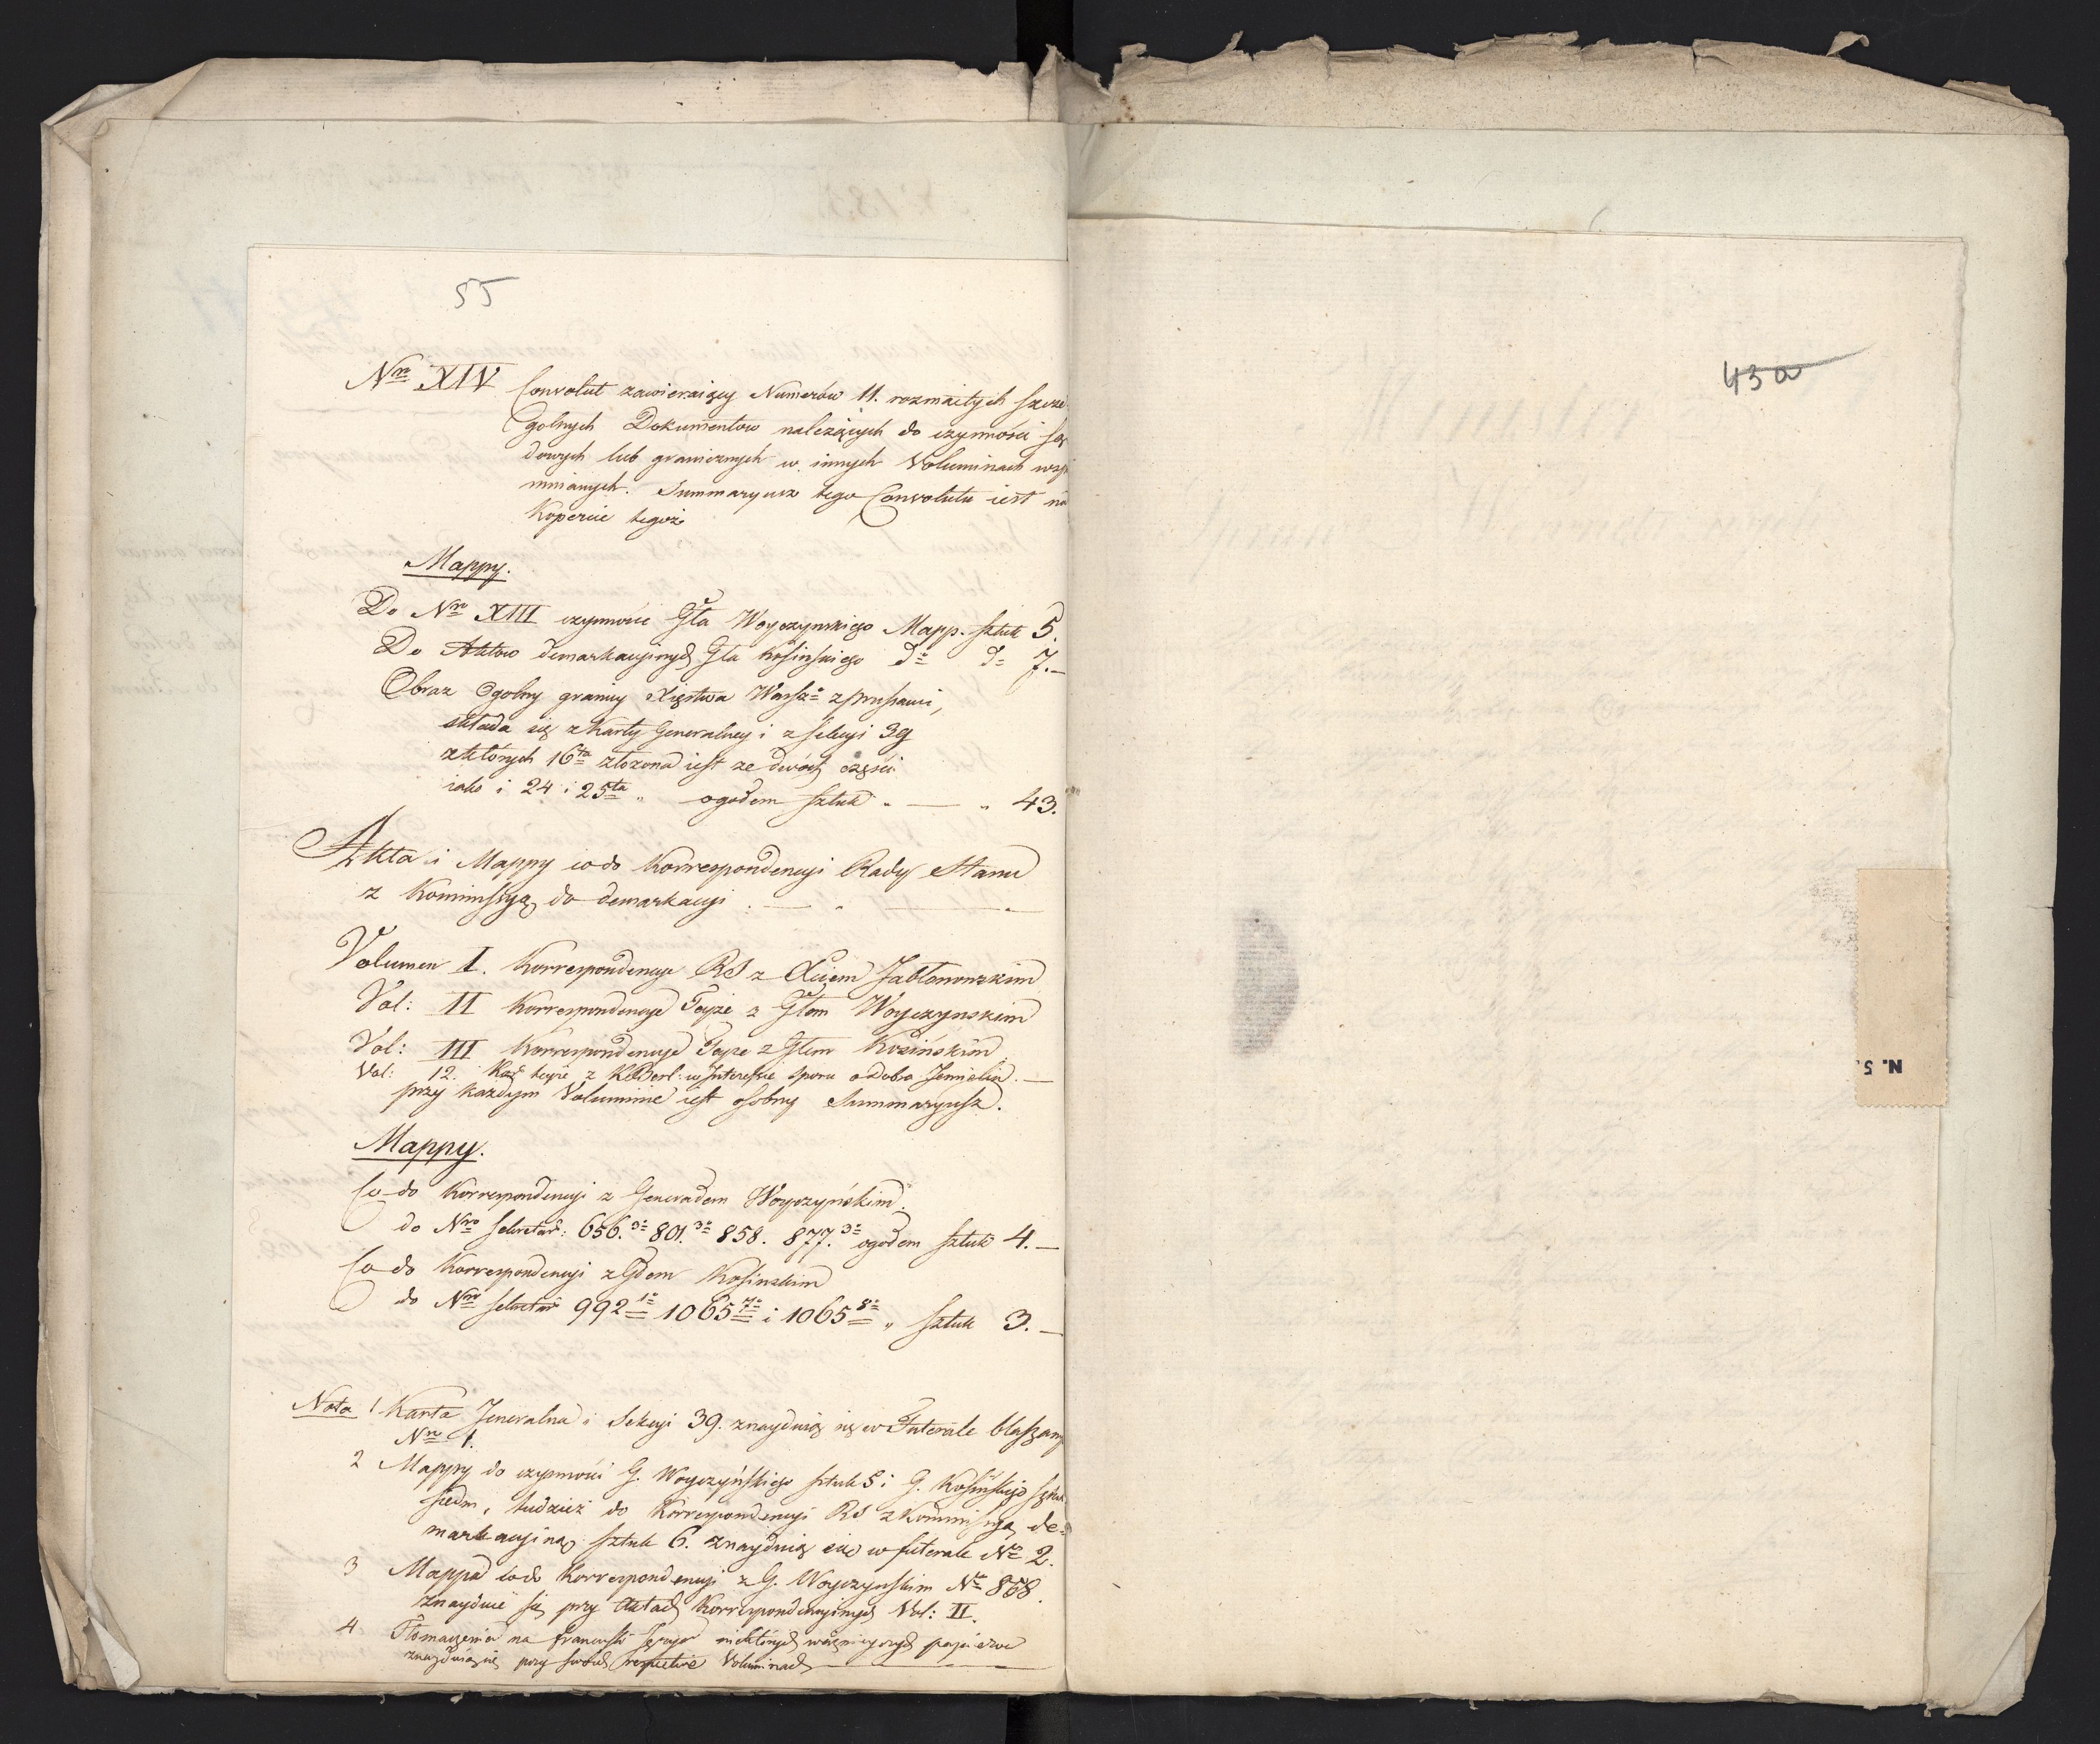 55
Nro XIV Convolut zawieraiący Numerów 11. rozmaitych szcze-
golnych Dokumentow należących do czynności są
dowych lub granicznych w innych Voluminach wspo
mnianych. Summaryusz tego Convolutu iest na
Kopercie tegoż
Mappy.
Do Nro XIII czynności Gła Woyczynskiego Mapp. sztuk 5.
Do Aktow demarkacyinych Gła Kosinskiego do do 7.—
Obraz Ogolny granicy Xięstwa Warszo z Prussami,
składa się z Karty Generalney i z sekcyi 39
z których 16ta złozona iest ze dwóch części
iako i 24 i 25ta " ogółem sztuk " — " 43.
Akta i Mappy co do Korrespondencyi Rady Stanu
z Kommissyą do demarkacyi
Volumen I. Korrespondencye RS z Xciem Jabłonowskim
Vol: II Korrespondencye Teyże z Głem Woyczynskim
Vol: III Korrespondencye Teyze z Głem Kosińskim
Vol: 12. teyże z w Interessie sporu o dobra Jemielin. —
przy kazdym Voluminie iest osobny Summaryusz.
Mappy.
Co do Korrespondencyi z Generałem Woyczyńskim.
do Nro sekretar: 656.3o 801.3o 858. 877.3o ogółem sztuk 4.—
Co do Korrespondencyi z Głem Kosinskim
do Nro sekretar 992 1o 1065 7o i 1065 8o " sztuk 3.—
Nota 1 Karta Jeneralna i Sekcyi 39. znayduią się w Futerale blaszany
Nro 1.
2 Mappy do czynności G. Woyczyńskiego sztuk 5 i G. Kosińskiego sztuk
siedm, tudzież do Korrespondencyi RS z Kommissyą de-
markacyiną sztuk 6. znayduią się w futerale No 2.
3 Mappa co do Korrespondencyi z G. Woyczynskim No 858.
znayduie się przy Aktach Korrespondencyinych Vol: II.
4 Tłomaczenia na francuski Język niektórych ważnieyszych papierow
znayduią się przy swoich respective Voluminach
43a
N. 5.